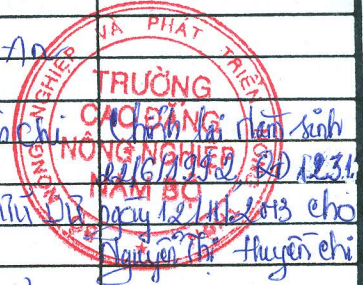 NÔNG NGHIỆP VÀ PHÁT TRIỂN NÔNG
TRƯỜNG
CAO ĐẲNG
NÔNG NGHIỆP
NAM BỘ
An
Chi Chỉnh lại năm sinh
12/6/1992, QĐ 1231
ngày 12/11/2013 cho
Nguyễn Thị Huyền Chi